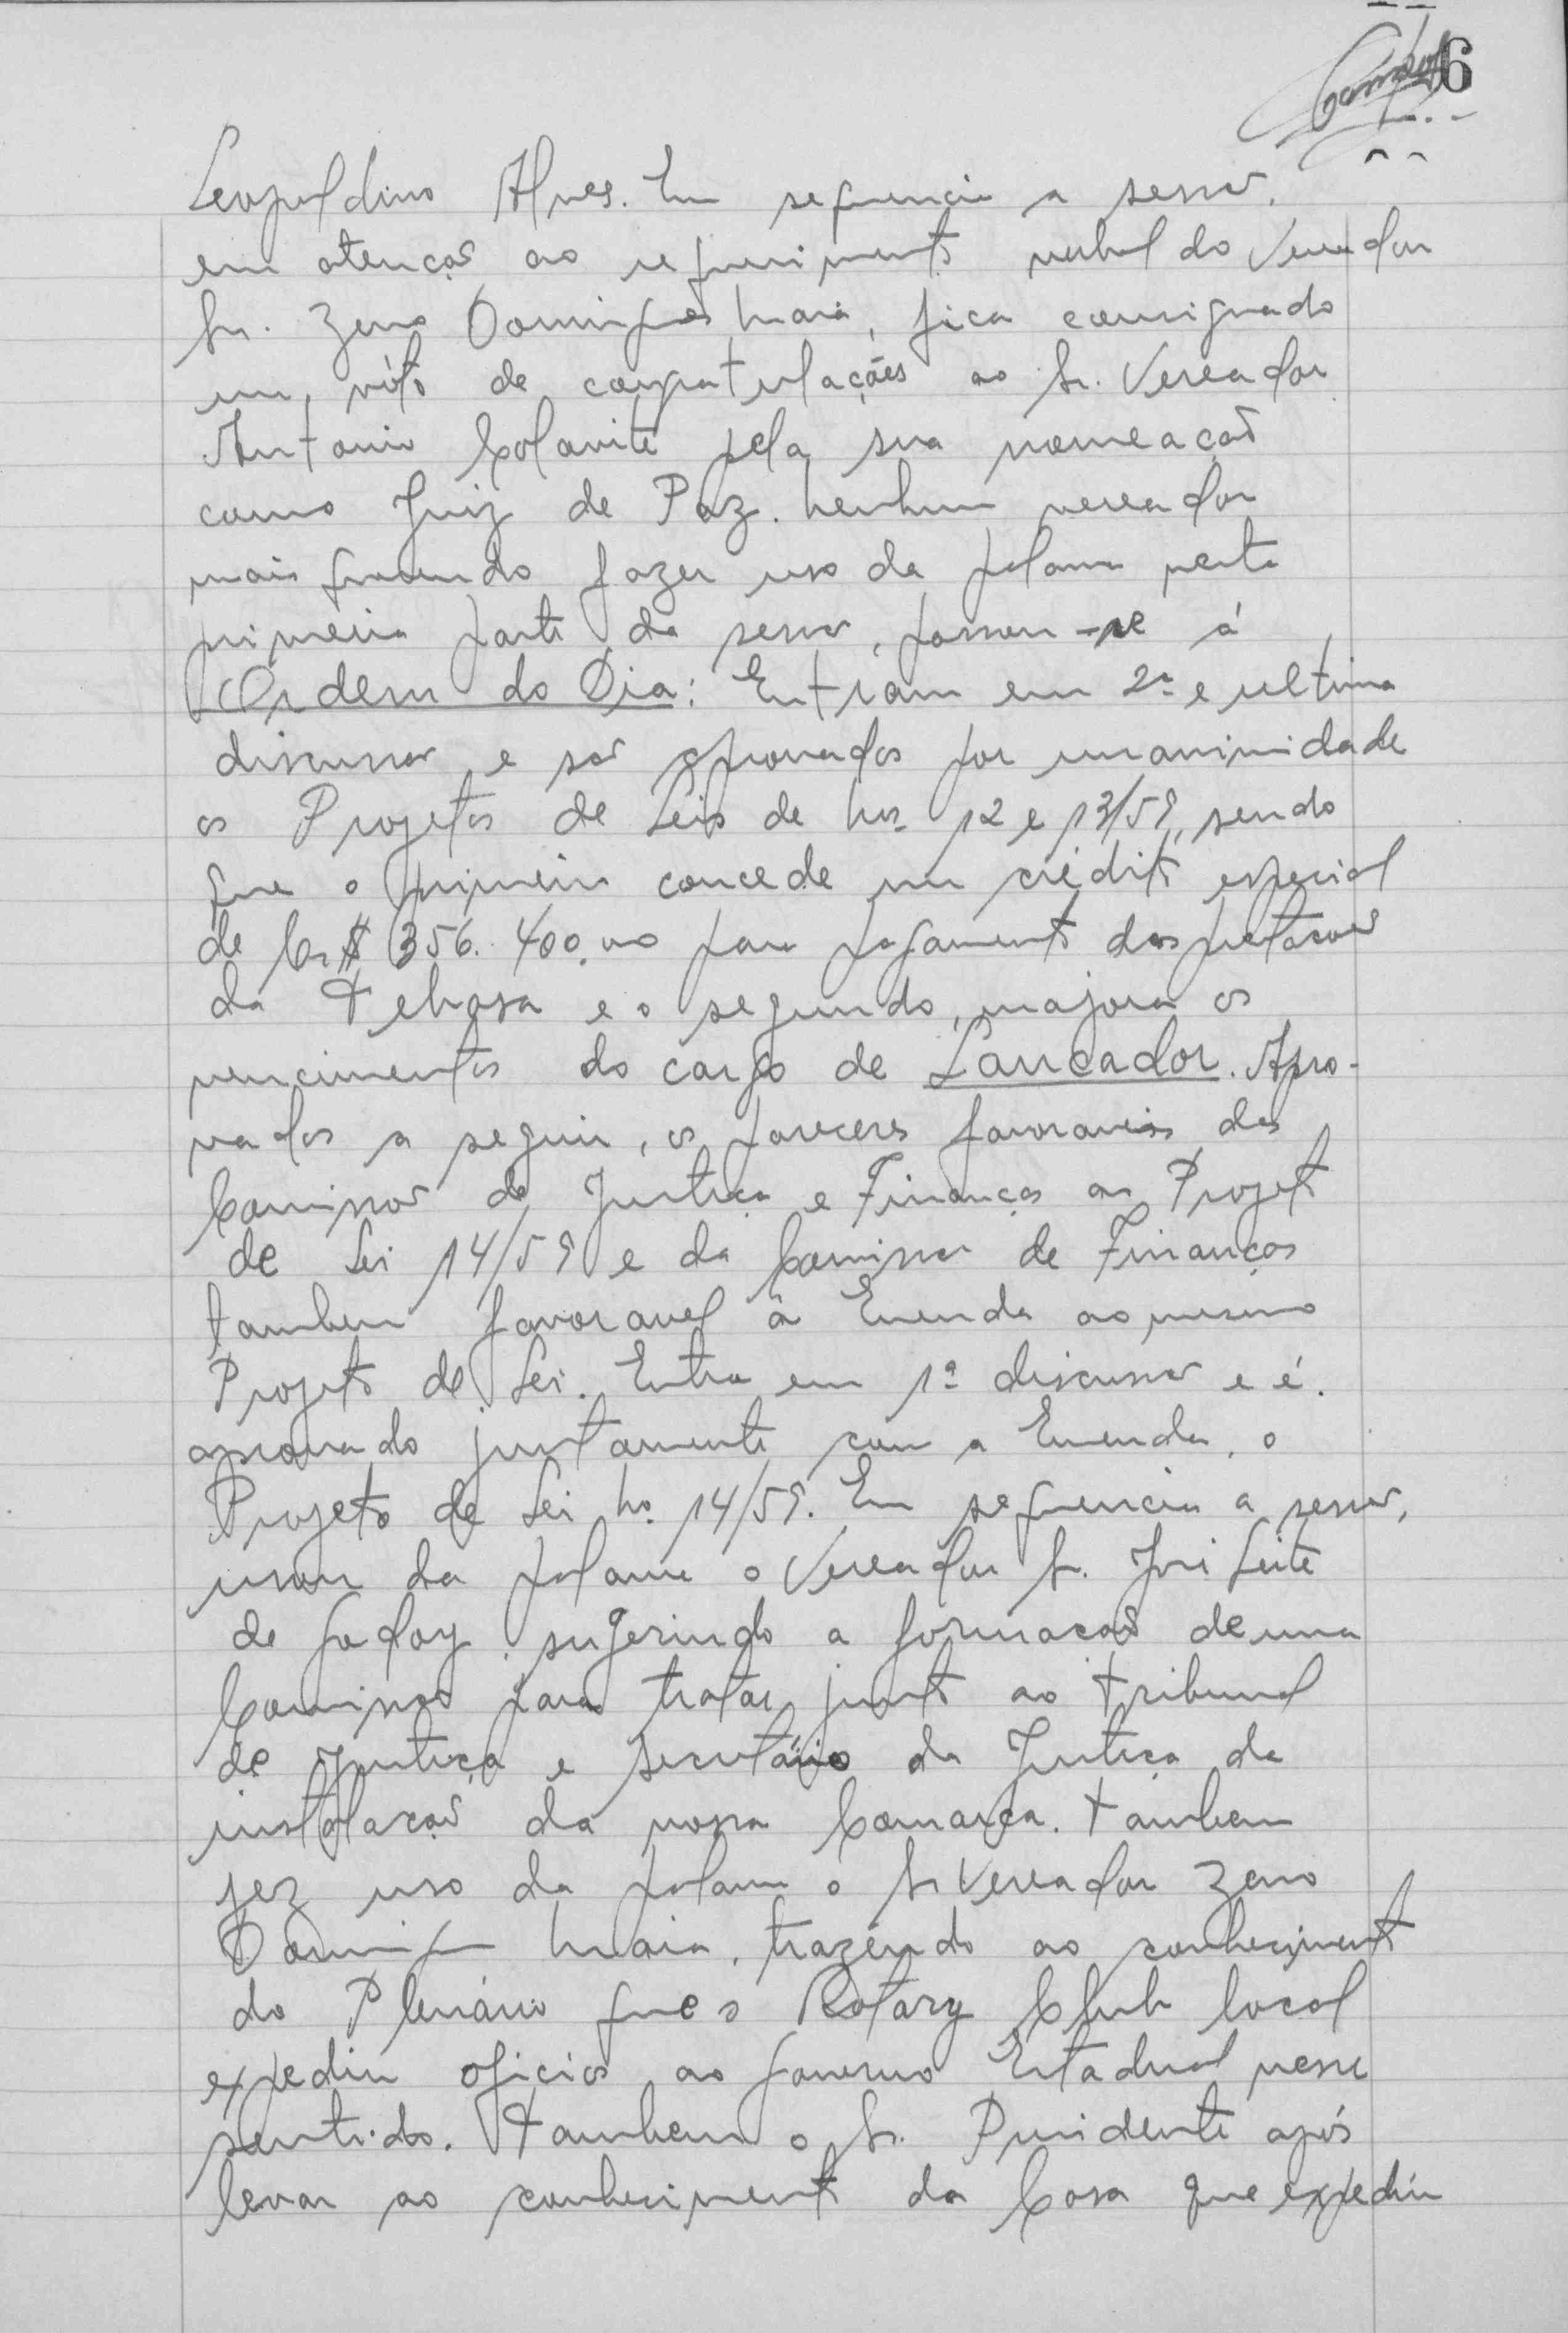 6
Leopoldino Alves. Em sequencia a sessão,
em atenção ao requerimento verbal do Vereador
Sr. Zeno Domingues Maia, fica consignado
um vóto de congratulações ao Sr. Vereador
Antonio Colavite pela sua nomeação
como Juiz de Paz. Nenhum vereador
mais querendo fazer uso da palavra nesta
primeira parte da sessão, passou-se á
Ordem do Dia: Entram em 2ª e ultima
discussão e são aprovados por unanimidade
os Projetos de Leis de Nos. 12 e 13/59, sendo
que o primeiro concede um crédito especial
de Cr$ 356.400,00 para pagamento das prestações
da Tehasa e o segundo, majora os
vencimentos do cargo de Lançador. Apro-
vados a seguir, os pareceres favoraveis das
Comissão de Justiça e Finanças ao Projeto
de Lei 14/59 e da Comissão de Finanças
tambem favoravel á Emenda ao mesmo
Projeto de Lei. Entra em 1ª discussão e é
aprovado juntamente com a Emenda, o
Projeto de Lei No. 14/59. Em sequencia a sessão,
usou da palavra o Vereador Sr. José Leite
de Godoy, sugerindo a formação de uma
Comissão para tratar junto ao Tribunal
de Justiça e Secretário da Justiça da
instalação da nossa Comarca. Tambem
fez uso da palavra o Sr Vereador Zeno
Domingues Maia, trazendo ao conhecimento
do Plenário que o Rotary Club local
expediu oficios ao Governo Estadual nesse
sentido. Tambem o Sr. Presidente após
levar ao conhecimento da Casa que expediu